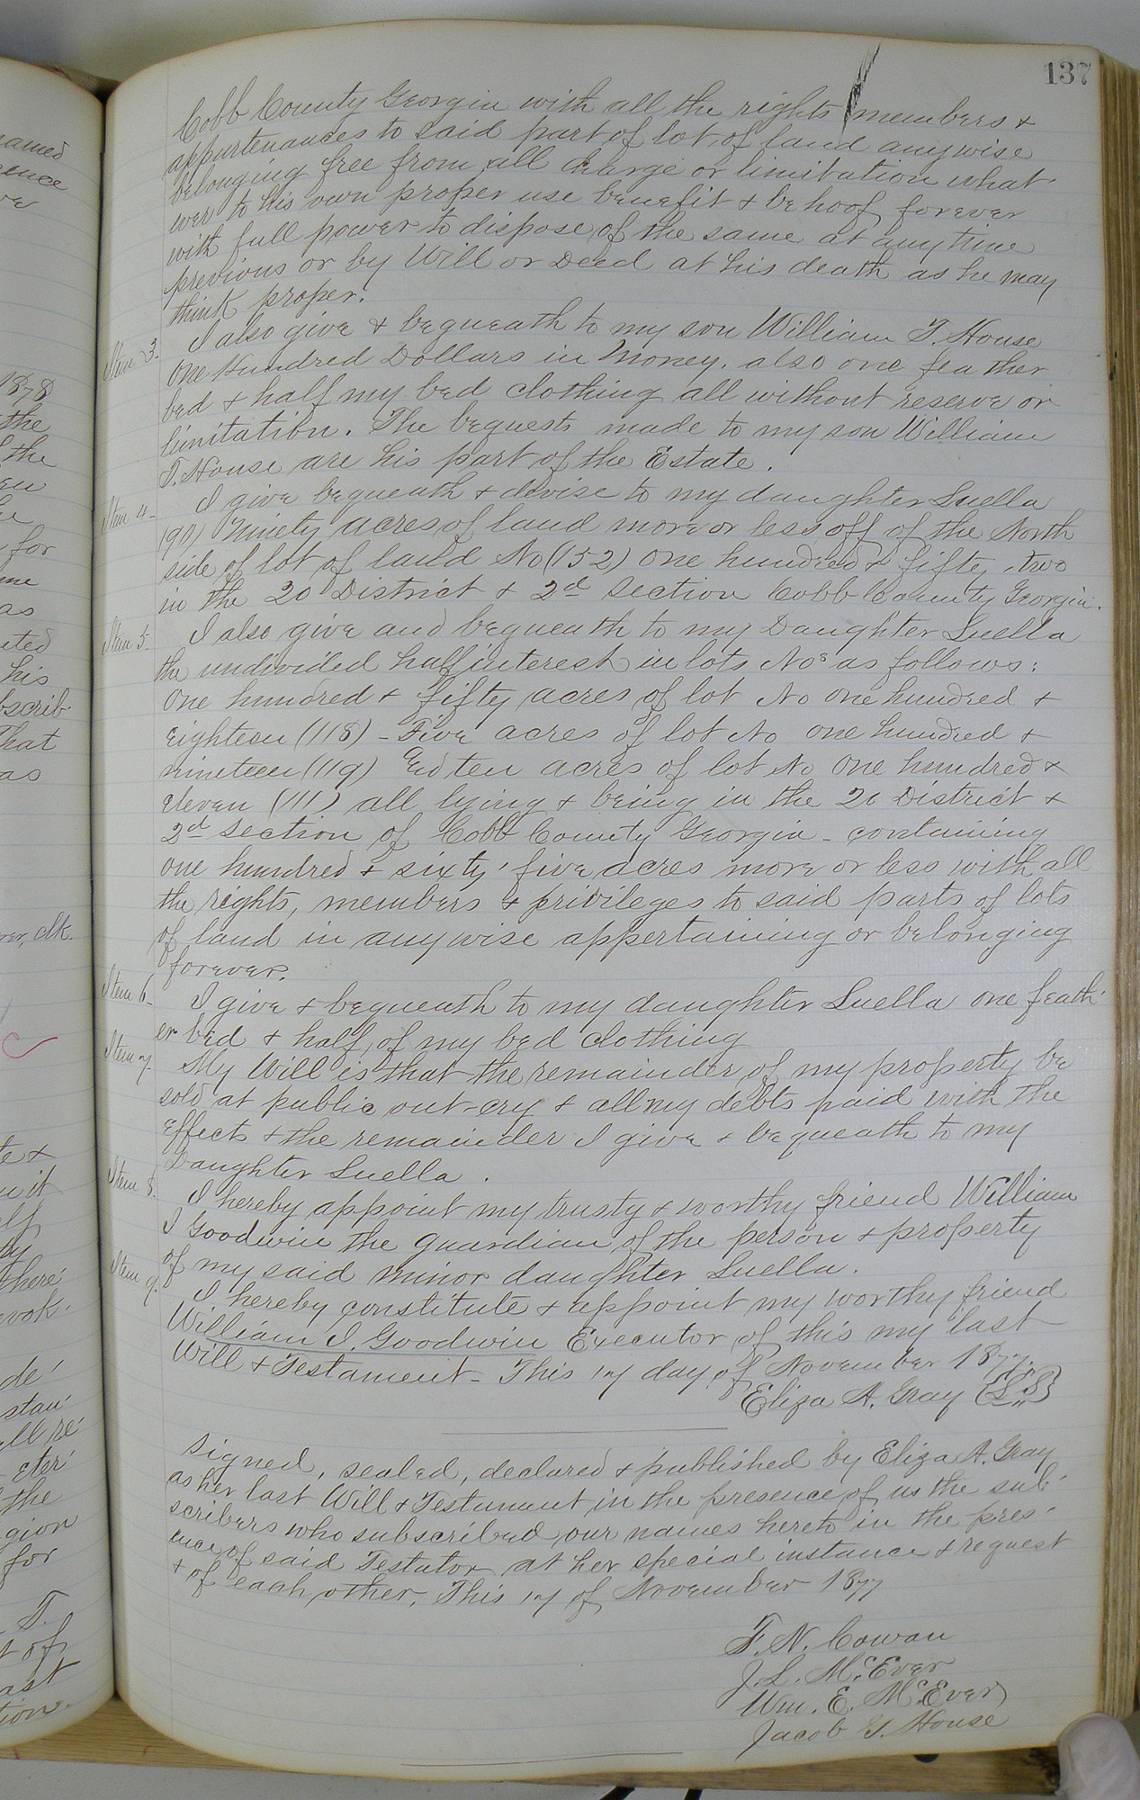 137
Cobb County Georgia with all the rights members &
appurtenances to said part of lot of land anywise
belonging free from all charge or limitation what
ever to his own proper use benefit & behoof forever
with full power to dispose of the same at any time
previous or by Will or Deed at his death as he may
think proper.
Item 3. I also give & bequeath to my son William T. House
One Hundred Dollars in Money. also one feather
bed & half my bed clothing all without reserve or
limitation. The bequests made to my son William
T. House are his part of the Estate.
Item 4. I give bequeath & devise to my daughter Luella
(90) Ninety acres of land more or less off of the North
side of lot of land No (152) one hundred & fifty two
in the 20 District & 2d Section Cobb County Georgia.
Item 5. I also give and bequeath to my Daughter Luella
the undivided half interest in lots Nos as follows:
One hundred & fifty acres of lot No one hundred &
Eighteen (118) - Five acres of lot No one hundred &
nineteen (119) ten acres of lot No One hundred &
eleven (111) all lying & being in the 20 District &
2d Section of Cobb County Georgia - containing
one hundred & sixty five acres more or less with all
the rights, members & privileges to said parts of lots
of land in any wise appertaining or belonging
forever.
Item 6. I give & bequeath to my daughter Luella one feath
er bed & half of my bed clothing
Item 7. My Will is that the remainder of my property be
sold at public out-cry & all my debts paid with the
effects & the remainder I give & bequeath to my
Daughter Luella.
Item 8. I hereby appoint my trusty & worthy friend William
I Goodwin the guardian of the person & property
of my said minor daughter Luella.
Item 9. I hereby constitute & appoint my worthy friend
William I. Goodwin Executor of this my last
Will & Testament - This 17 day of November 1877.
Eliza A. Gray {L.S}
Signed, sealed, declared & published by Eliza A. Gray
as her last Will & Testament in the presence of us the sub
scribers who subscribed our names hereto in the pres-
ence of said Testator at her special instance & request
& of each other, This 17 of November 1877
F. N. Cowan
J. L. McEver
Wm. E. McEver
Jacob G. House